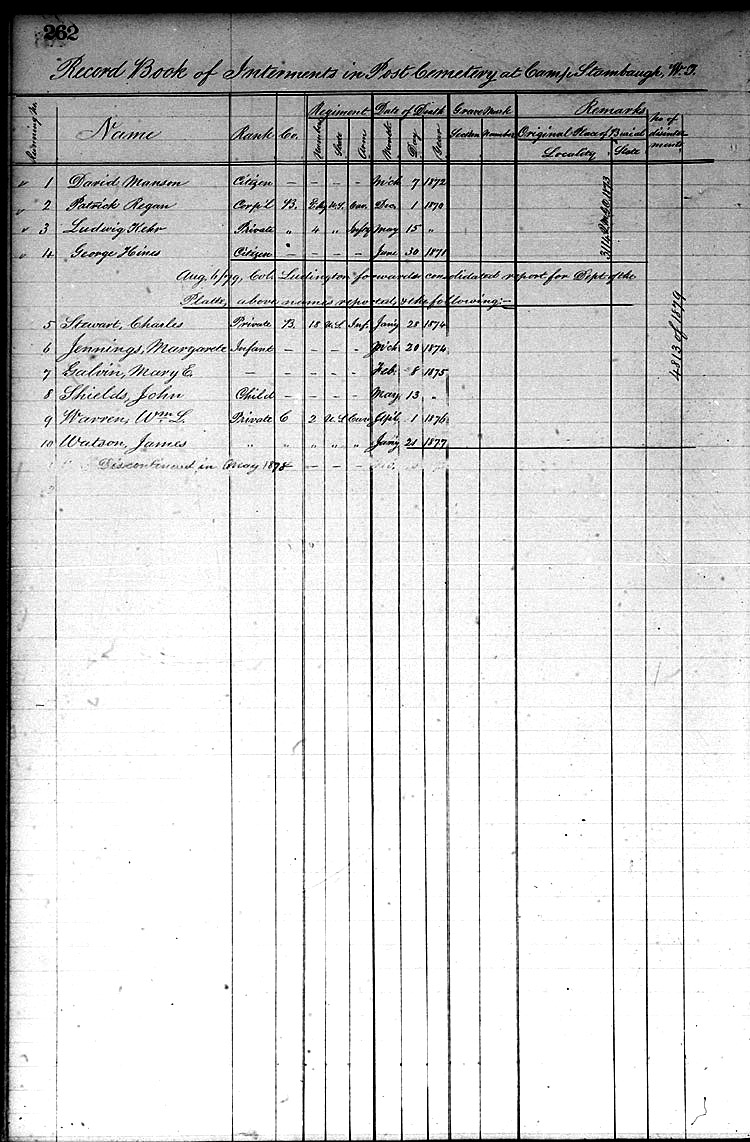 262
Record Book of Interments in Post Cemetery at Camp Stambaugh, W.T.
Running No. Name Rank Co. Regiment Date of Death Grave Mark Remarks No of disinterments
Number State Arm Month Day Year Section Number Original Place of Burial
Locality State
1 David Manson Citizen – – – – Mch 7 1872
2 Patrick Regan Corp'l B. U.S. Cav. Dec. 1 1870
3 Ludwig Kehr Private " 4 " Inf'y May 15 "
4 George Hines Citizen – – – – June 30 1871
3114 1873
Aug. 6/79, Col. Ludington forwards consolidated report for Dept of the
Platte, above names reported, & the following:–
5 Stewart, Charles Private B. 18 U.S. Inf. Jan'y 28 1874
6 Jennings, Margarete Infant – – – – Mch 20 1874
7 Galvin, Mary E. – – – – – Feb. 8 1875
8 Shields, John Child – – – – May 13 "
9 Warren, Wm. L. Private C 2 U.S. Cav. Apl. 1 1876
10 Watson, James " " " " " Jan'y 21 1877
Discontinued in May 1878 – – –
4813 of 1879